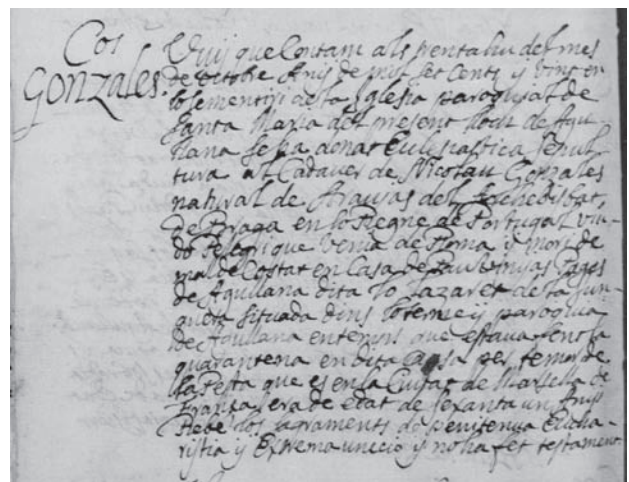 Cos
Gonzales.
Vuij que Contam als trenta hu del mes
de Octobre Anÿs de mil set Cents y vint en
lo sementiri de esta Iglesia paroquial de
Santa Maria del present lloch de Agu-
llana se ha donat Ecclesiastica sepul-
tura al Cadaver de Nicolau Gonzales
natural de Araujas del Archebisbat
de Braga en lo Regne de Portugal viu-
do Pelegri que venia de Roma y mori de
mal de Costat en Casa de Pau Vinyas Pages
de Agullana dita lo Lazaret de la Jun-
quera situada dins lo terme y paroquia
de Agullana entemps que estava fent la
quarantena en dita Casa per temor de
la Pesta que es en la Ciutat de Marsella de
França, era de edat de sexanta un Anys
Rebe los sagraments de penitencia Eucha-
ristia y Extremaunccio y no ha fet testament.